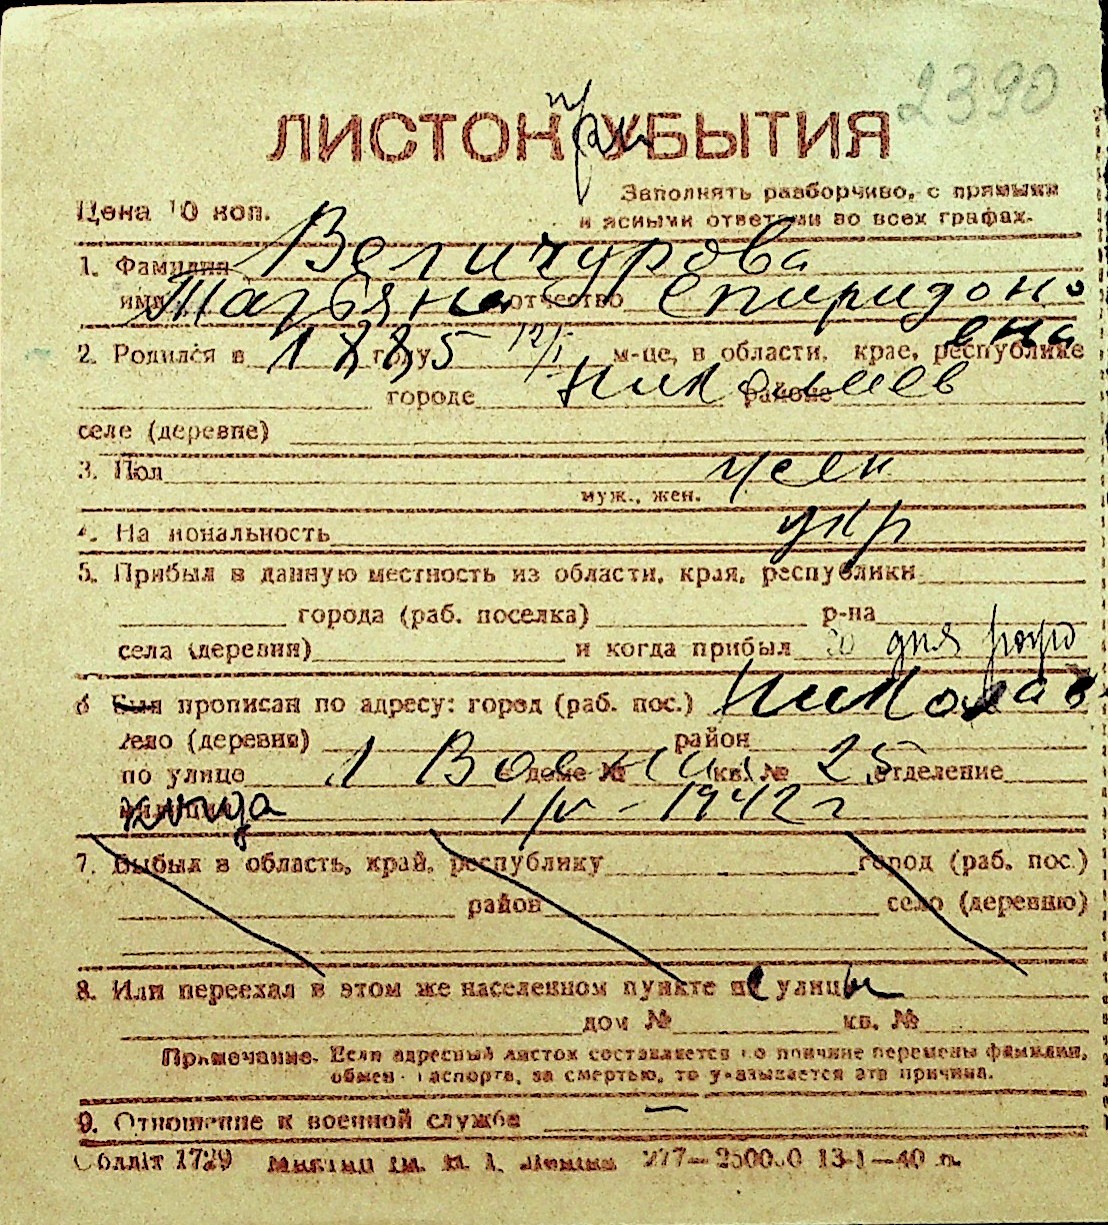 2390
ЛИСТОК УБЫТИЯ
при
Заполнять разборчиво, с прямыми
и ясными ответами во всех графах.
Цена 10 коп.
1. Фамилия Величурова
имя Татьяна отчество Спиридоно
вна
2. Родился в 1885 году 12/I м-це, в области, крае, республике
городе Николаев районе
селе (деревне)
3. Пол жен
муж., жен.
4. Национальность укр
5. Прибыл в данную местность из области, края, республики
города (раб. поселка) р-на
села (деревни) и когда прибыл со дня рожд
6 Был прописан по адресу: город (раб. пос.) Николаев
село (деревня) район
по улице 1 Военная в доме № кв. № 25 отделение
милиции 1942 г
7. Выбыл в область, край, республику город (раб. пос.)
район село (деревню)
8. Или переехал в этом же населенном пункте с улицы
дом № кв. №
Примечание. Если адресный листок составляется по причине перемены фамилии,
обмен паспорта, за смертью, то указывается эта причина.
9. Отношение к военной службе —
Обллiт 1729 277— 13-I—40 п.